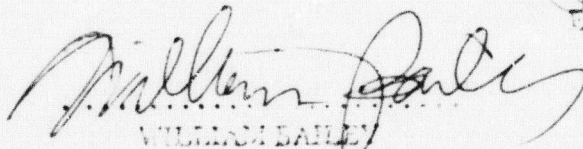 William Bailey
WILLIAM BAILEY